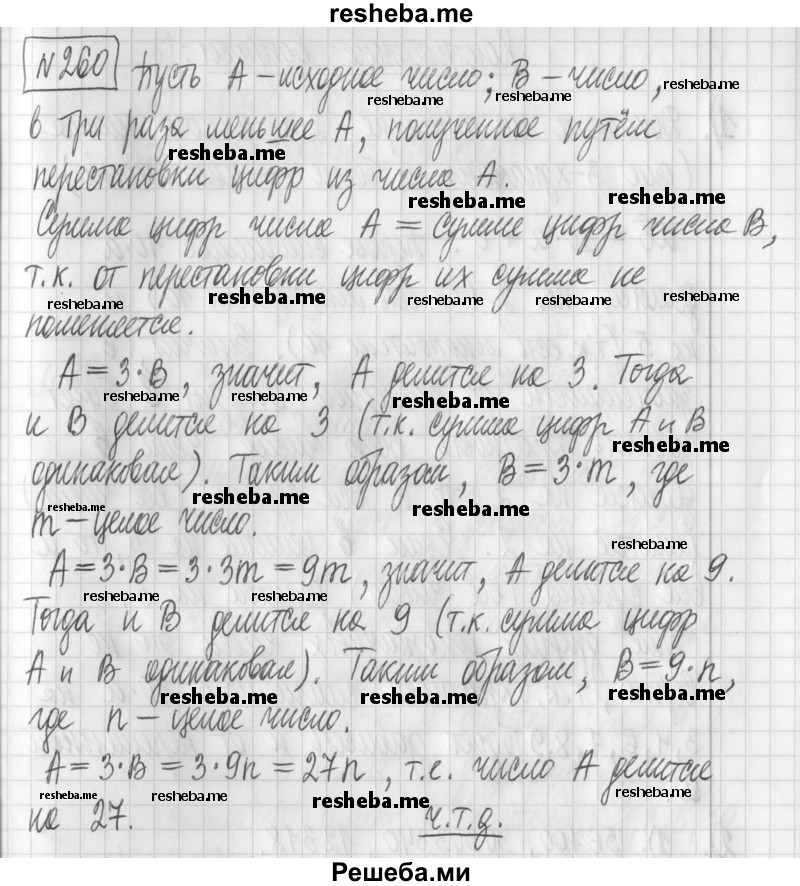 resheba.me
№260 Пусть А – исходное число; В – число,
resheba.me resheba.me resheba.me
в три раза меньшее А, полученное путём
resheba.me
перестановки цифр из числа А.
resheba.me resheba.me
Сумма цифр числа А = сумме цифр числа В,
т.к. от перестановки цифр их сумма не
resheba.me resheba.me resheba.me resheba.me resheba.me
поменяется.
А = 3·В, значит, А делится на 3. Тогда
resheba.me resheba.me resheba.me
и В делится на 3 (т.к. сумма цифр А и В
resheba.me
одинаковая). Таким образом, В = 3·m, где
resheba.me resheba.me resheba.me
m – целое число.
resheba.me
А = 3·В = 3·3m = 9m, значит, А делится на 9.
resheba.me resheba.me
Тогда и В делится на 9 (т.к. сумма цифр
А и В одинаковая). Таким образом, В = 9·n,
resheba.me resheba.me resheba.me
где n – целое число.
А = 3·В = 3·9n = 27n, т.е. число А делится
resheba.me resheba.me resheba.me resheba.me
на 27. ч.т.д.
Решеба.ми